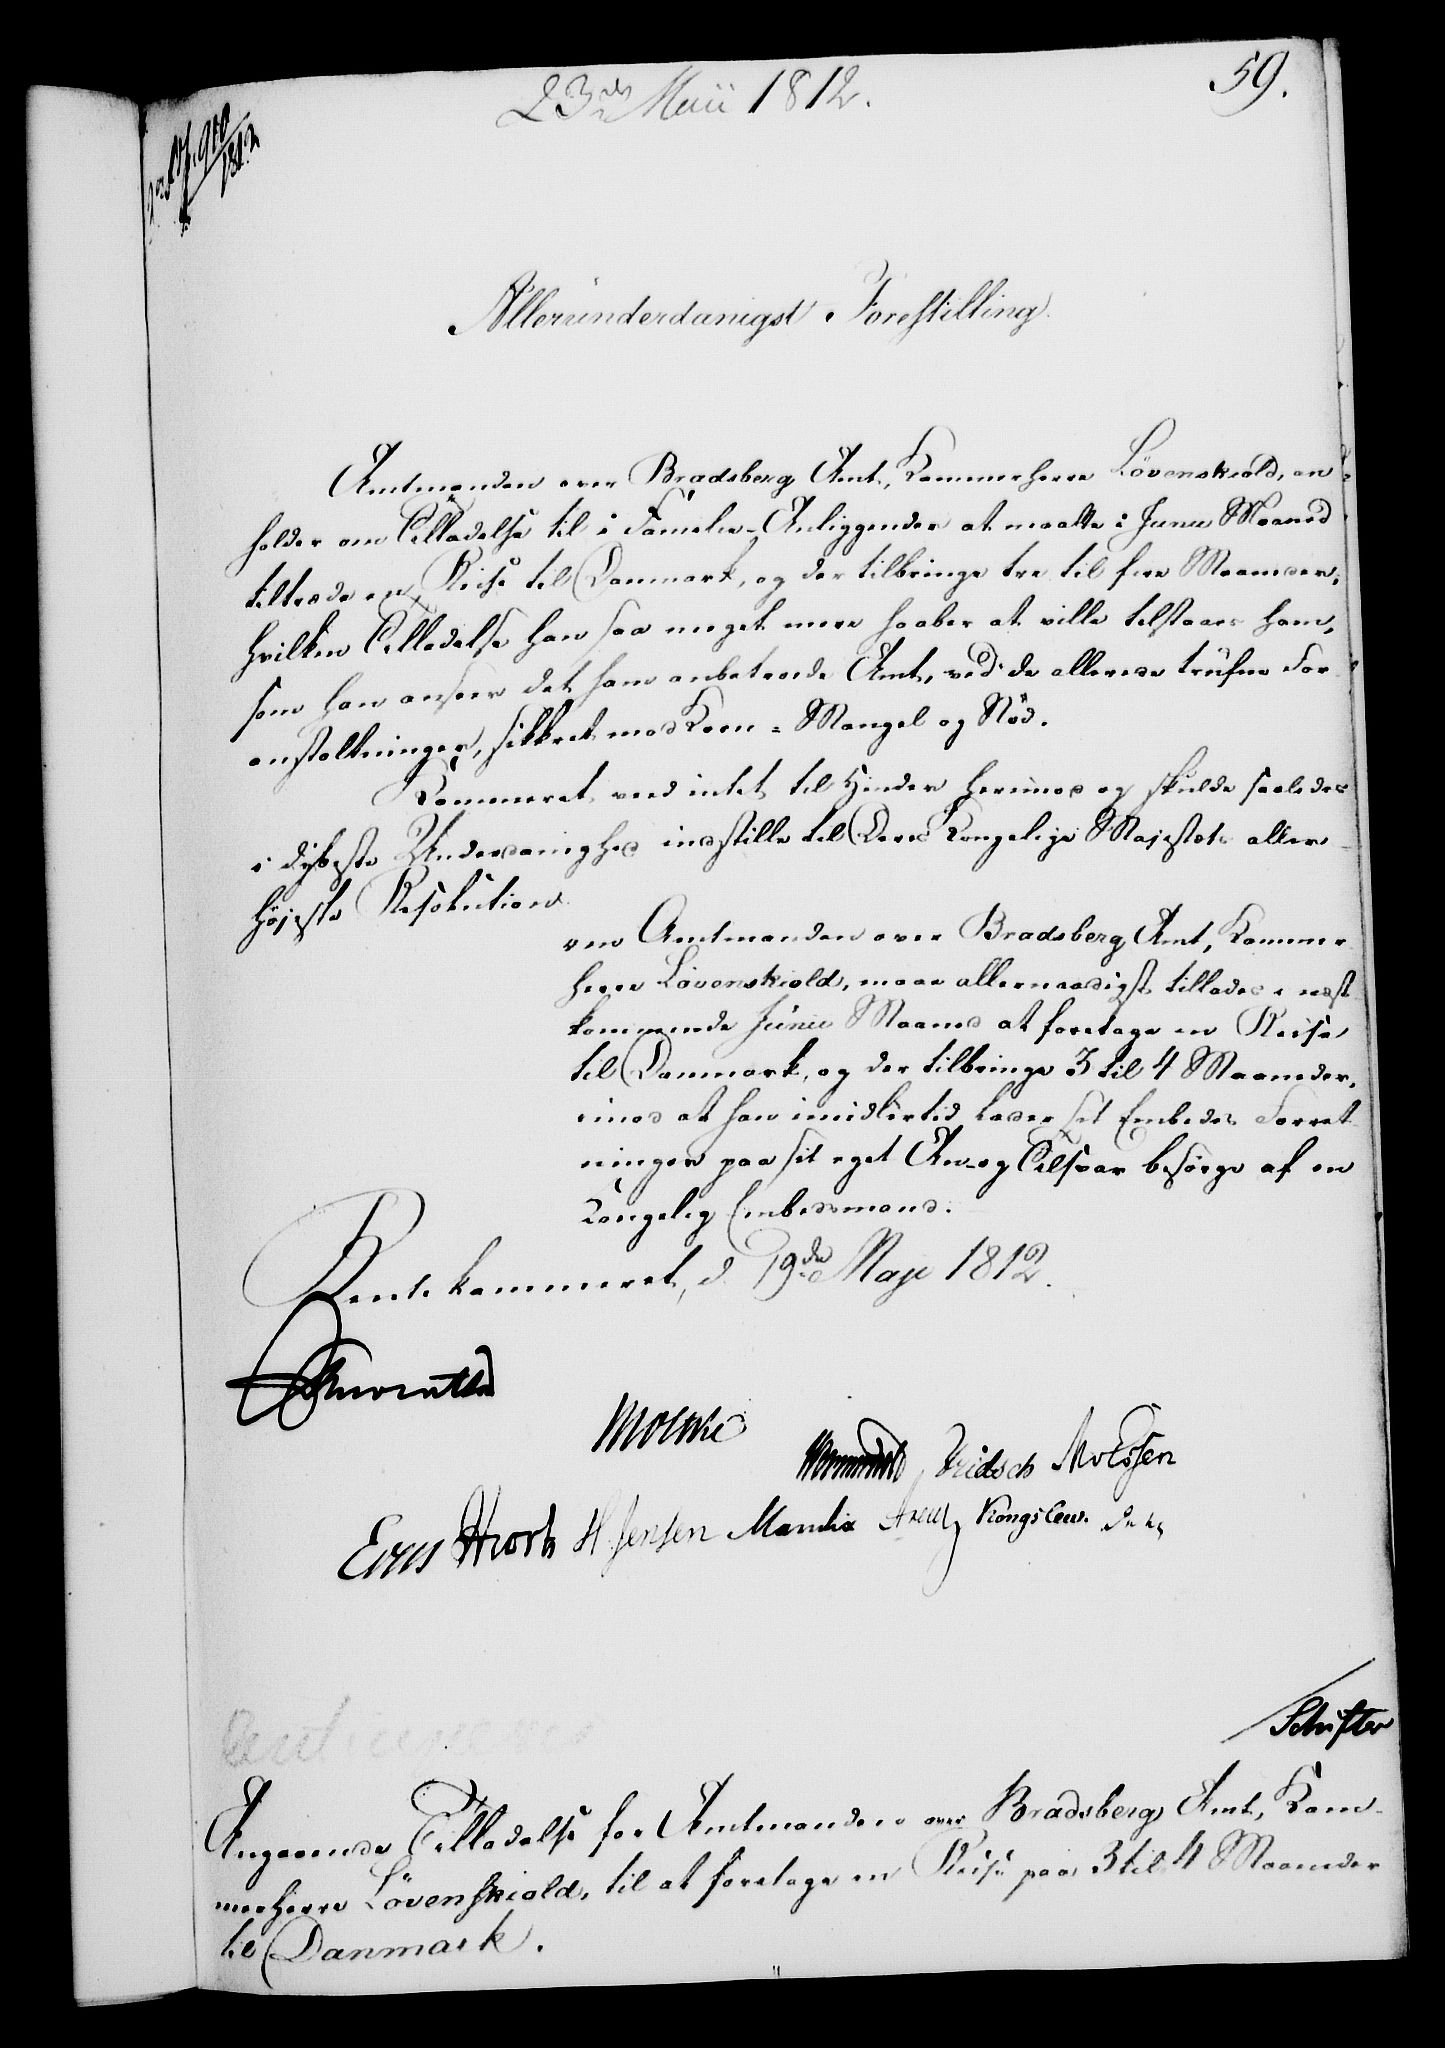 23de Maii 1812.
59.
910
1812
Allerunderdanigst Forestilling.
Amtmanden over Bradsberg Amt, Kammerherre Lövenskiold, an-
holder om Tilladelse til i Familie-Anliggender at maatte i Junii Maaned
tiltræde en Reise til Danmark, og der tilbringe tre til fire Maaneder;
hvilken Tilladelse han saa meget mere haaber at ville tilstaaes ham,
som han anseer det ham anbetroede Amt, ved de allerede trufne For-
anstaltninger, sikkret mod Korn-Mangel og Nöd.
Kammeret veed intet til Hinder herimod og skulde saaledes
i dybeste Underdanighed indstille til Deres Kongelige Majestæts aller-
höjeste Resolution
om Amtmanden over Bradsberg Amt, Kammer-
herre Lövenskiold, maae allernaadigst tillades i næst-
kommende Junii Maaned at foretage en Reise
til Danmark, og der tilbringe 3 til 4 Maaneder,
imod at han imidlertid lader sit Embedes Forret-
ninger paa sit eget An- og Tilsvar besörge af en
kongelig Embedsmand.
Rentekammeret, d. 19de Maji 1812.
Moltke
Wormskiold Fridsch Mvessen
Hiort H. Jensen Manthe Kongslew.
Schifter
Angaaende Tilladelse for Amtmanden over Bradsberg Amt, Kam-
merherre Lövenskiold, til at foretage en Reise paa 3 til 4 Maaneder
til Danmark.